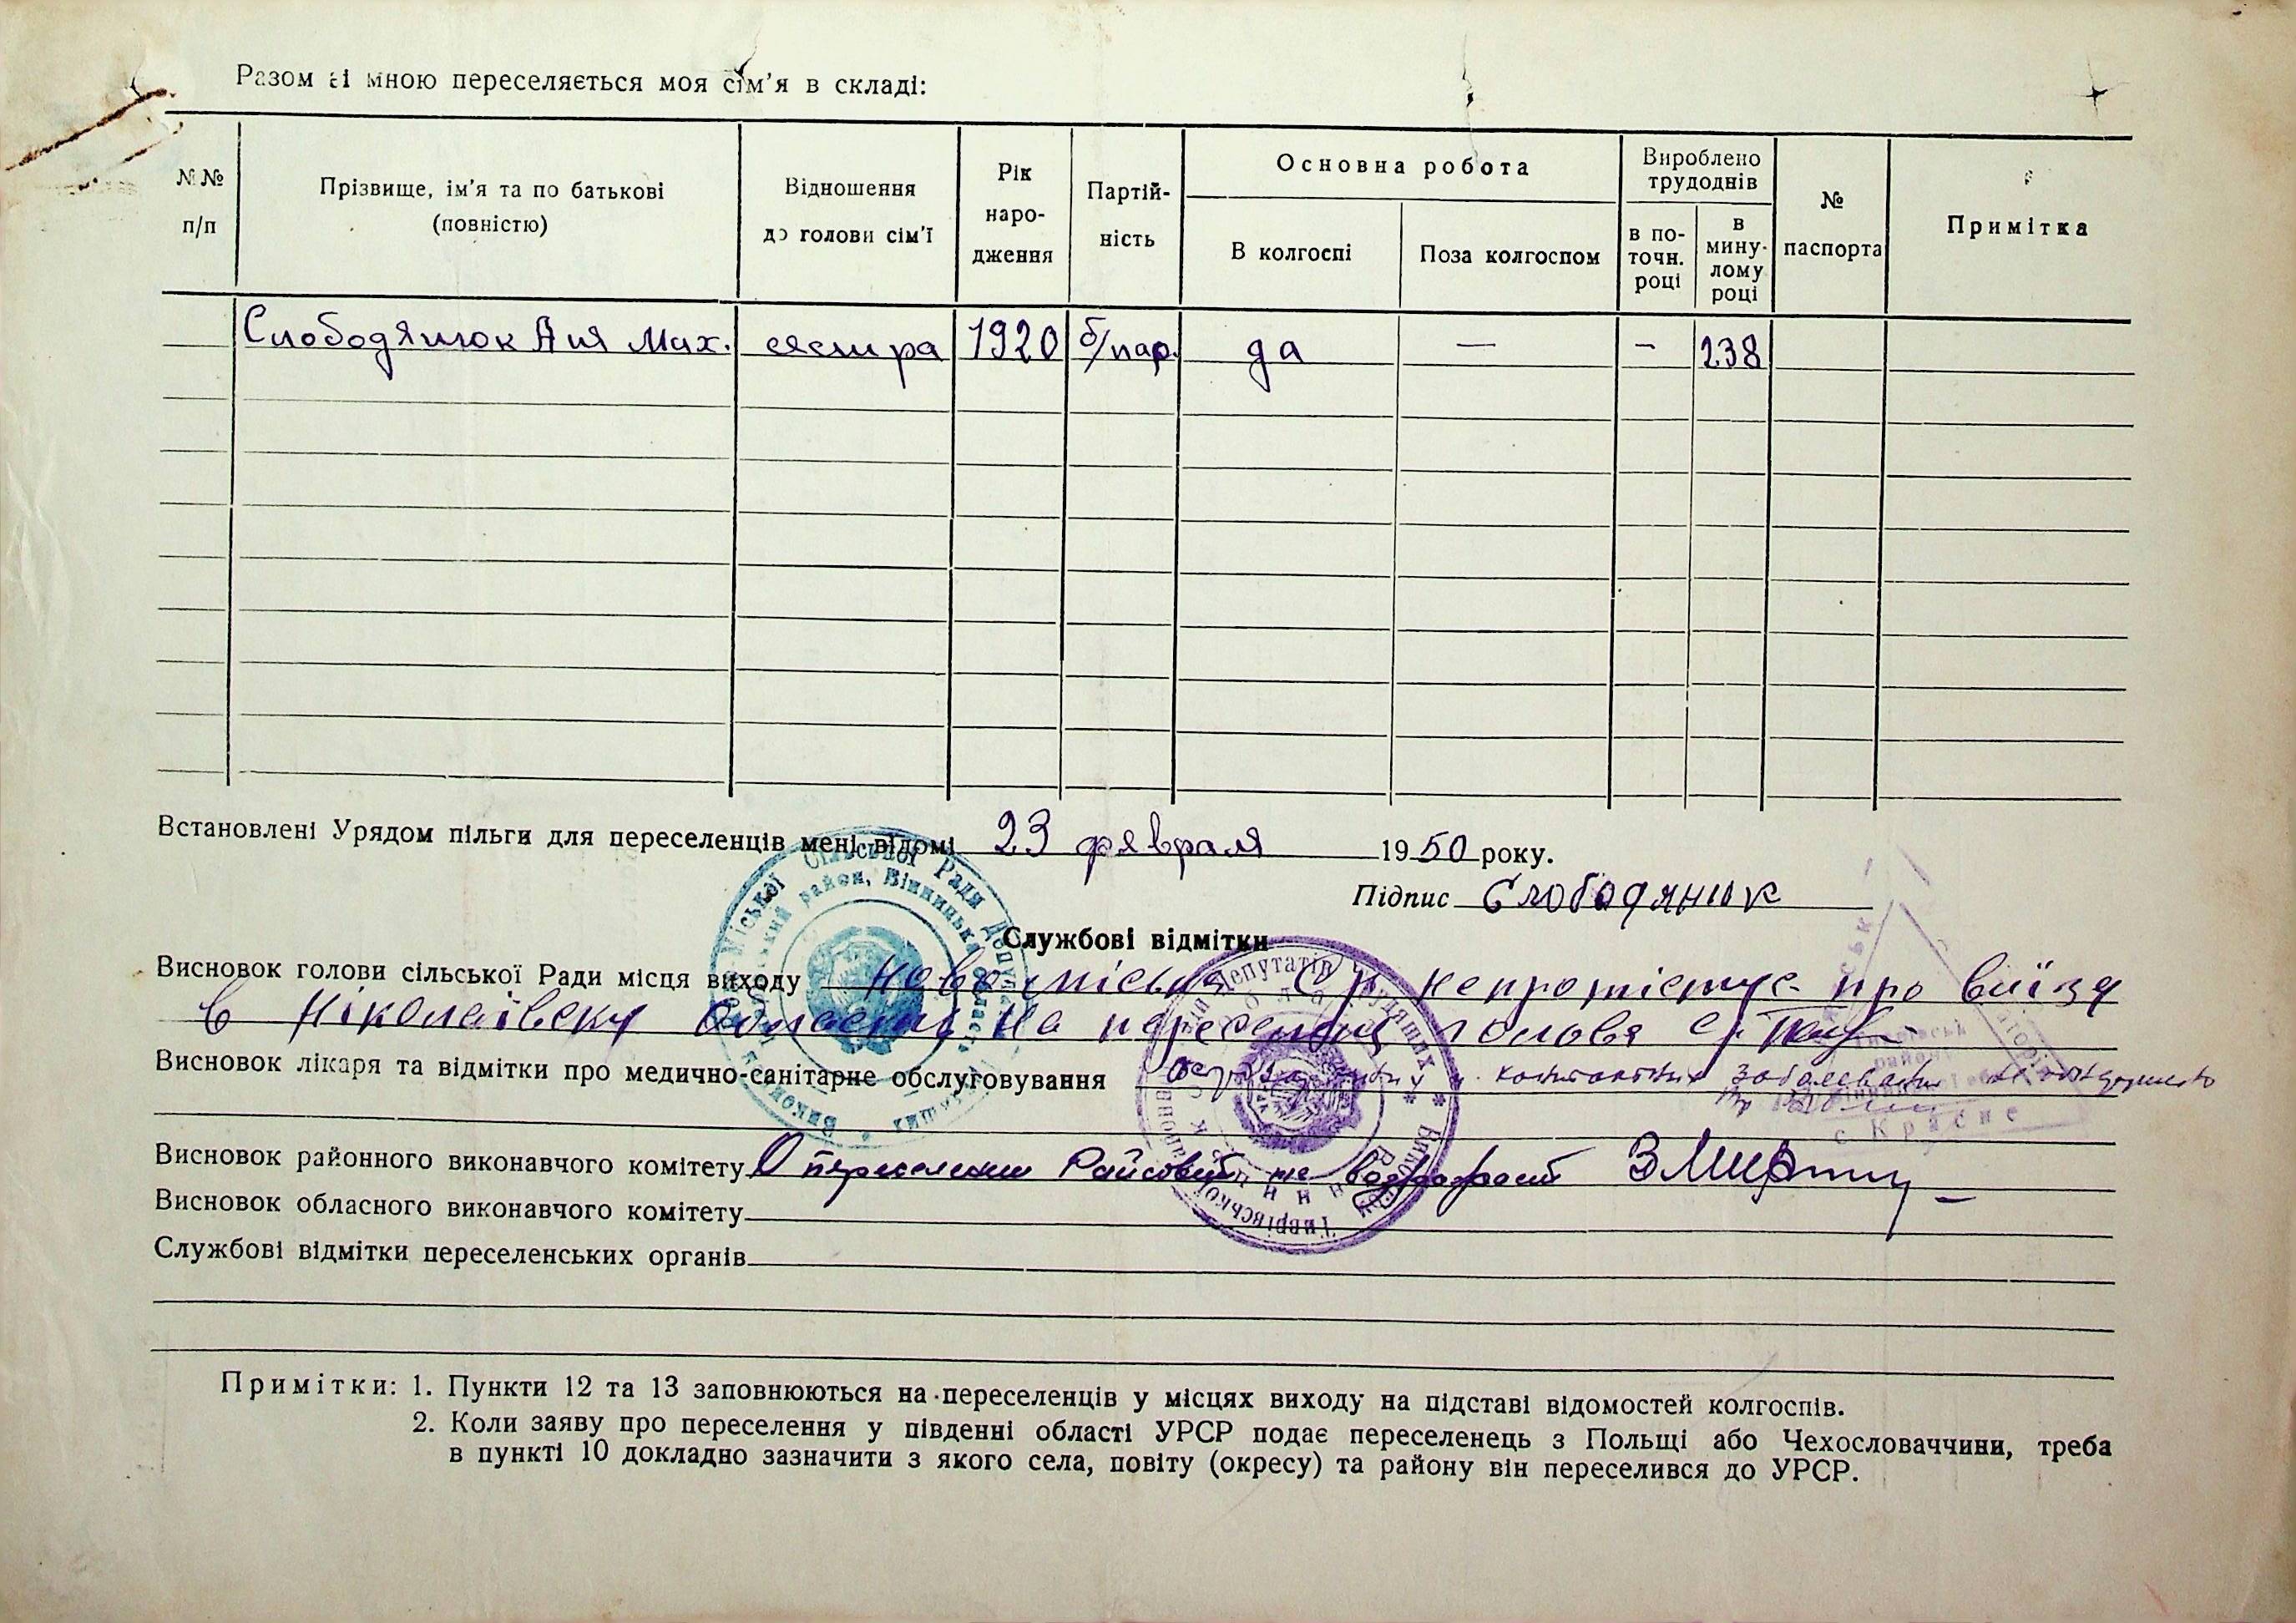 Разом зі мною переселяється моя сім'я в складі:
№№ п/п
Прізвище, ім'я та по батькові (повністю)
Відношення до голови сім'ї
Рік народження
Партійність
Основна робота
В колгоспі
Поза колгоспом
Вироблено трудоднів
в поточн. році
в минулому році
№ паспорта
Примітка
Слободянюк Аня Мих. сястра 1920 б/пар. да — - 238
Встановлені Урядом пільги для переселенців мені відомі 23 февраля 1950 року.
Підпис Слободянюк
Службові відмітки
Висновок голови сільської Ради місця виходу Ново міська С/р непротієтує про виїзд
в Ніколаївску область на переселенц голова с/р
Висновок лікаря та відмітки про медично-санітарне обслуговування контактних заболеваний не
с Красне
Висновок районного виконавчого комітету О переселении Райсовет не
Висновок обласного виконавчого комітету
Службові відмітки переселенських органів
Примітки: 1. Пункти 12 та 13 заповнюються на переселенців у місцях виходу на підставі відомостей колгоспів.
2. Коли заяву про переселення у південні області УРСР подає переселенець з Польщі або Чехословаччини, треба
в пункті 10 докладно зазначити з якого села, повіту (окресу) та району він переселився до УРСР.